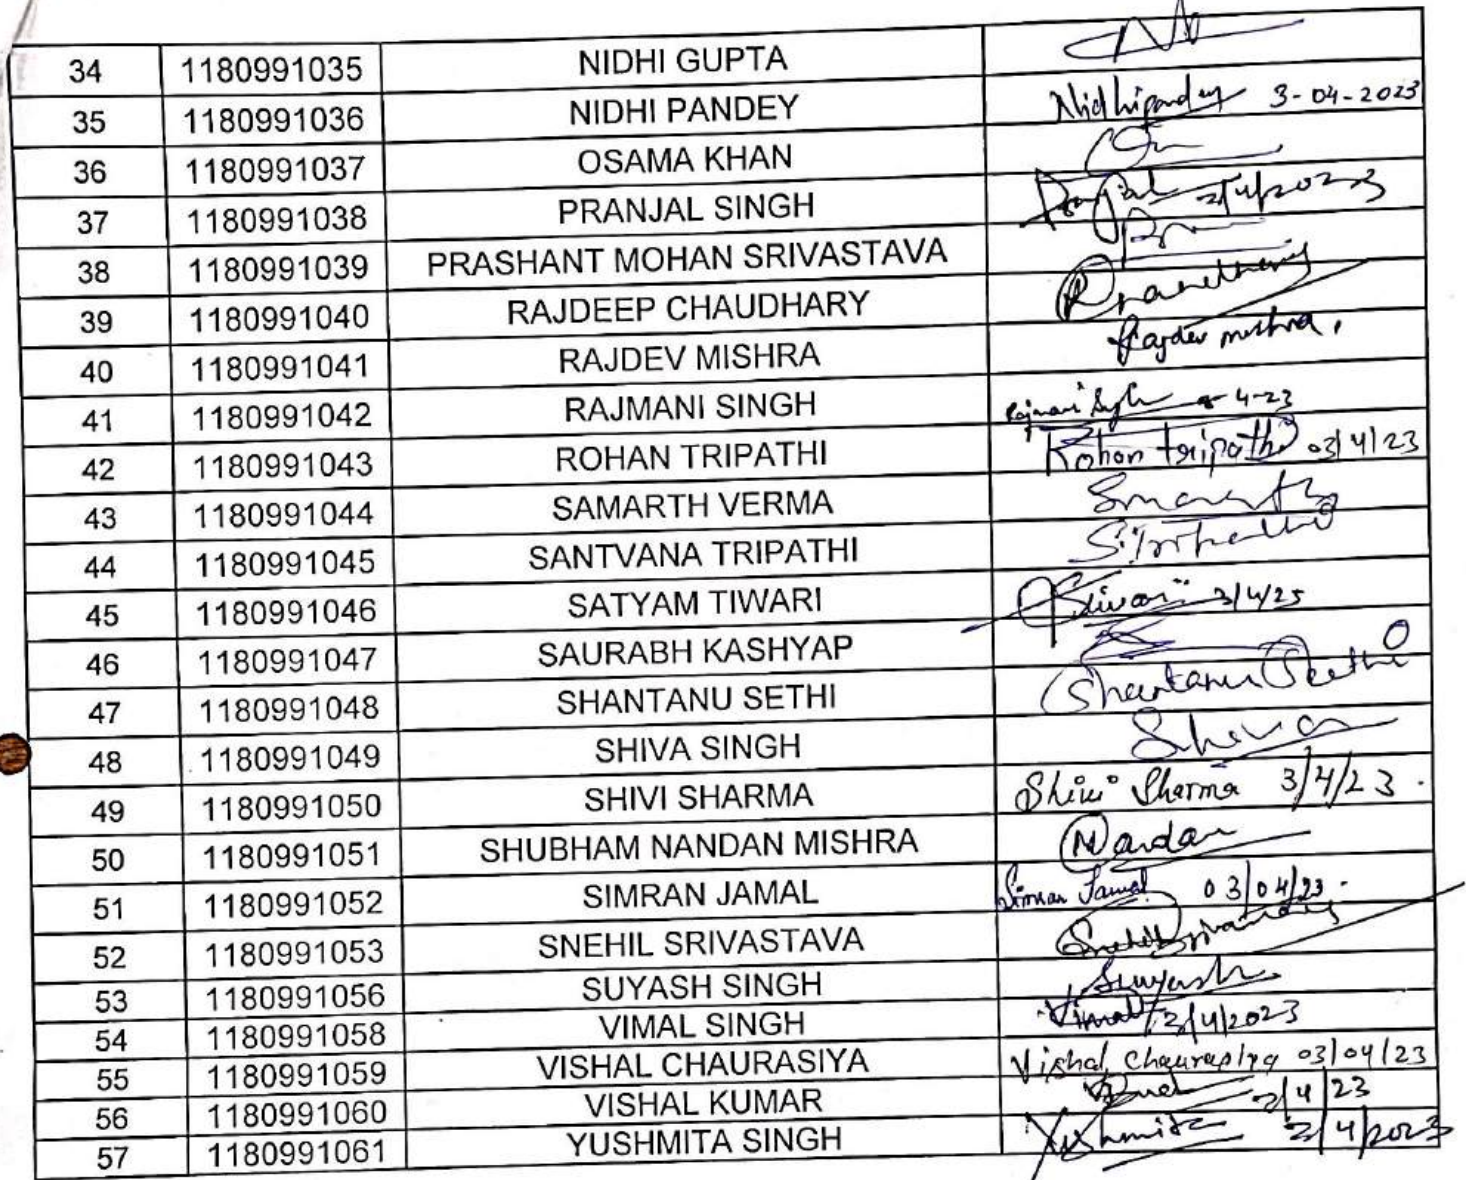 34 1180991035 NIDHI GUPTA
35 1180991036 NIDHI PANDEY Nidhipandey 3-04-2023
36 1180991037 OSAMA KHAN
37 1180991038 PRANJAL SINGH Pranjal 3/4/2023
38 1180991039 PRASHANT MOHAN SRIVASTAVA
39 1180991040 RAJDEEP CHAUDHARY
40 1180991041 RAJDEV MISHRA Rajdev mishra,
41 1180991042 RAJMANI SINGH Rajmani Singh 4-23
42 1180991043 ROHAN TRIPATHI Rohan tripathi 03/4/23
43 1180991044 SAMARTH VERMA
44 1180991045 SANTVANA TRIPATHI S.Tripathi
45 1180991046 SATYAM TIWARI Tiwari 3/4/23
46 1180991047 SAURABH KASHYAP
47 1180991048 SHANTANU SETHI Shantanu Sethi
48 1180991049 SHIVA SINGH Shiva
49 1180991050 SHIVI SHARMA Shivi Sharma 3/4/23.
50 1180991051 SHUBHAM NANDAN MISHRA Nandan
51 1180991052 SIMRAN JAMAL Simran Jamal 03/04/23.
52 1180991053 SNEHIL SRIVASTAVA Snehil Srivastava
53 1180991056 SUYASH SINGH Suyash
54 1180991058 VIMAL SINGH Vimal 3/4/2023
55 1180991059 VISHAL CHAURASIYA Vishal Chaurasiya 03/04/23
56 1180991060 VISHAL KUMAR 3/4/23
57 1180991061 YUSHMITA SINGH Yushmita 3/4/2023